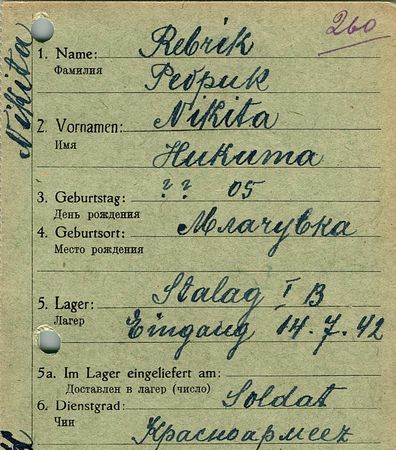 260
1. Name: Rebrik
Фамилия Ребрик
2. Vornamen: Nikita
Имя Никита
3. Geburtstag: ? ? 05
День рождения
4. Geburtsort: Млачувка
Место рождения
5. Lager: Stalag I B
Лагерь Eingang 14.7.42
5a. Im Lager eingeliefert am:
Доставлен в лагерь (число)
6. Dienstgrad: Soldat
Чин Красноармеец
Nikita